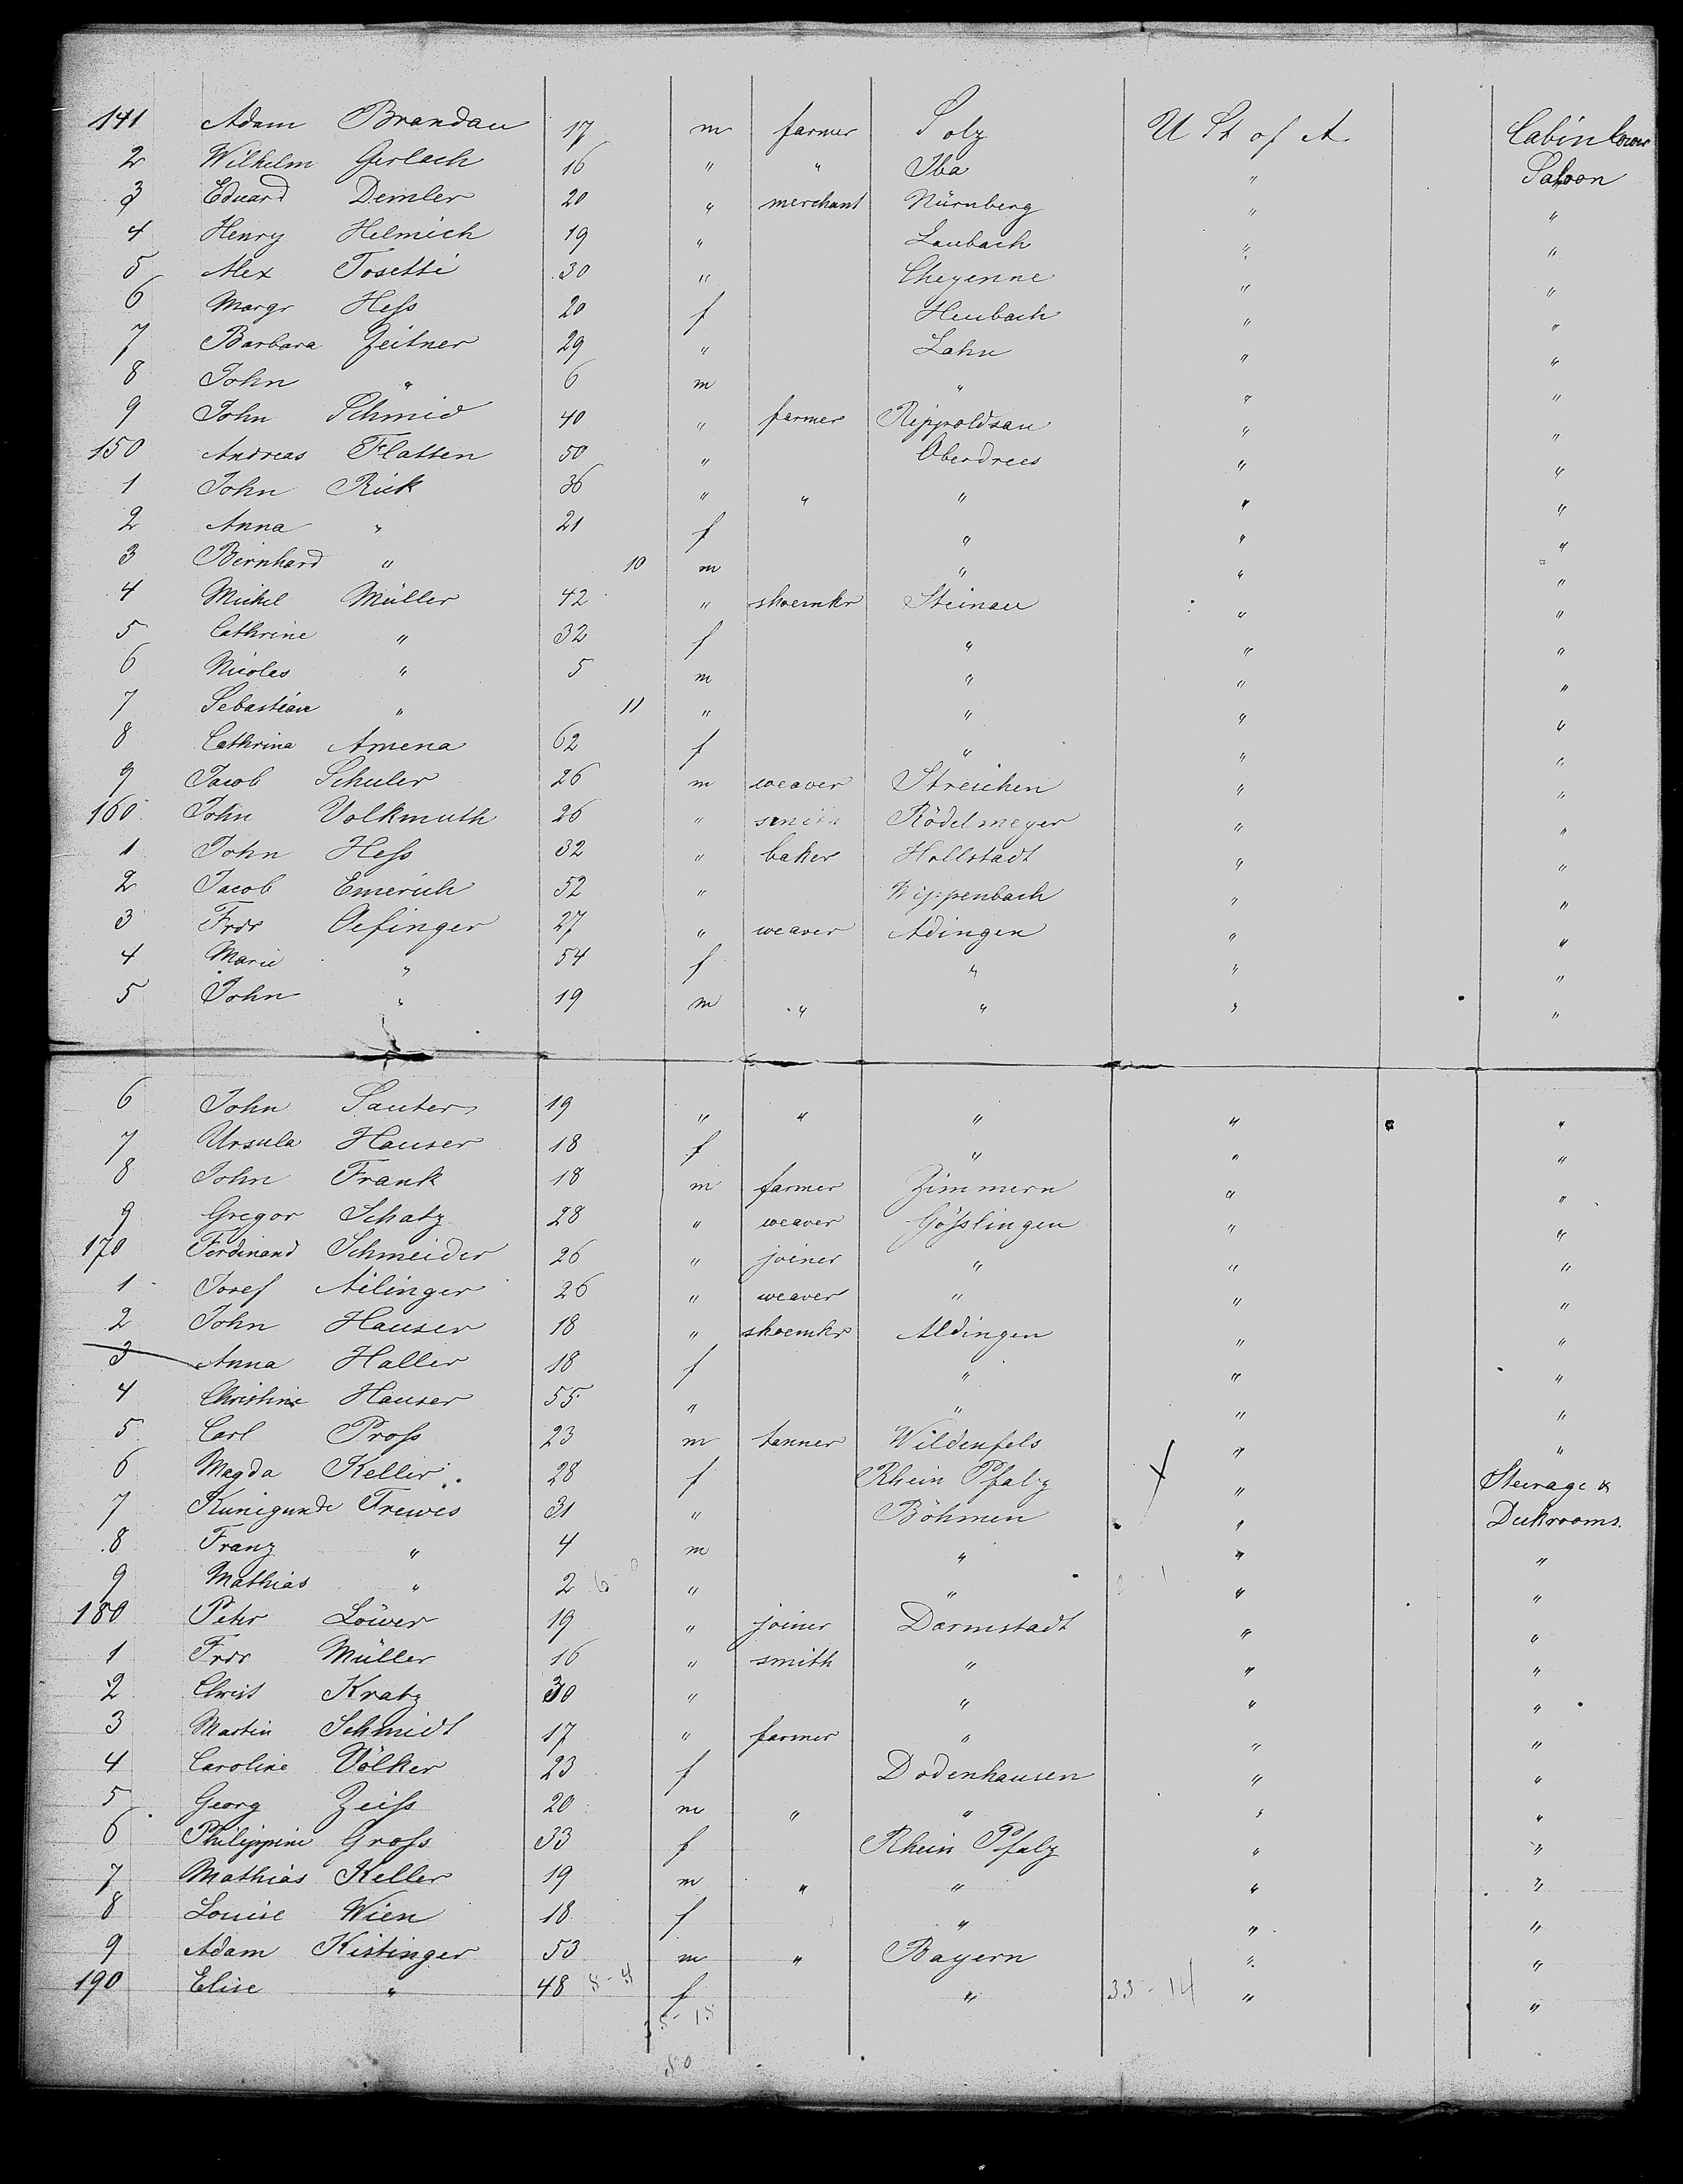 141 Adam Brandau 17 m farmer Solz U St of A Cabin lower
2 Wilhelm Gerlach 16 " " Iba " Saloon
3 Eduard Demler 20 " merchant Nürnberg " "
4 Henry Helmich 19 " Laubach " "
5 Alex Tosetti 30 " Cheyenne " "
6 Margr Hess 20 f Heubach " "
7 Barbara Zeitner 29 " Lahn " "
8 John " 6 m " " "
9 John Schmid 40 " farmer Rippoldsau " "
150 Andreas Flatten 50 " Oberdrees " "
1 John Rick 36 " " " " "
2 Anna " 21 f " " "
3 Bernhard " 10 m " " "
4 Michel Müller 42 " shoemkr Steinau " "
5 Cathrine " 32 f " " "
6 Nicolas " 5 m " " "
7 Sebastian " 11 " " " "
8 Cathrina Amena 62 f " " "
9 Jacob Schuler 26 m weaver Streichen " "
160 John Volkmuth 26 " smith Rödelmeyer " "
1 John Hess 32 " baker Hollstadt " "
2 Jacob Emerich 52 " Wippenbach " "
3 Frdr Oefinger 27 " weaver Adingen " "
4 Marie " 54 f " " "
5 John " 19 m " " " "
6 John Sauter 19 " " " " "
7 Ursula Hauser 18 f " " "
8 John Frank 18 m farmer Zimmern " "
9 Gregor Schatz 28 " weaver Gösslingen " "
170 Ferdinand Schneider 26 " joiner " " "
1 Josef Ailinger 26 " weaver " " "
2 John Hauser 18 " shoemkr Aldingen " "
3 Anna Haller 18 f " " "
4 Christine Hauser 55 " " " "
5 Carl Pross 23 m tanner Wildenfels " "
6 Magda Keller 28 f Rhein Pfalz X " Steerage &
7 Kunigunde Trewes 31 " Böhmen " Deckrooms.
8 Franz " 4 m " " "
9 Mathias " 2 " " " "
180 Peter Löwer 19 " joiner Darmstadt " "
1 Frdr Müller 16 " smith " " "
2 Christ Kratz 30 " " " "
3 Martin Schmidt 17 " farmer " " "
4 Caroline Völker 23 f Dodenhausen " "
5 Georg Zeiss 20 m " " " "
6 Philippine Gross 33 f Rhein Pfalz " "
7 Mathias Keller 19 m " " " "
8 Louise Wien 18 f " " "
9 Adam Kistinger 53 m " Bayern " "
190 Elise " 48 8-4 f " 33-14 " "
35-18
50